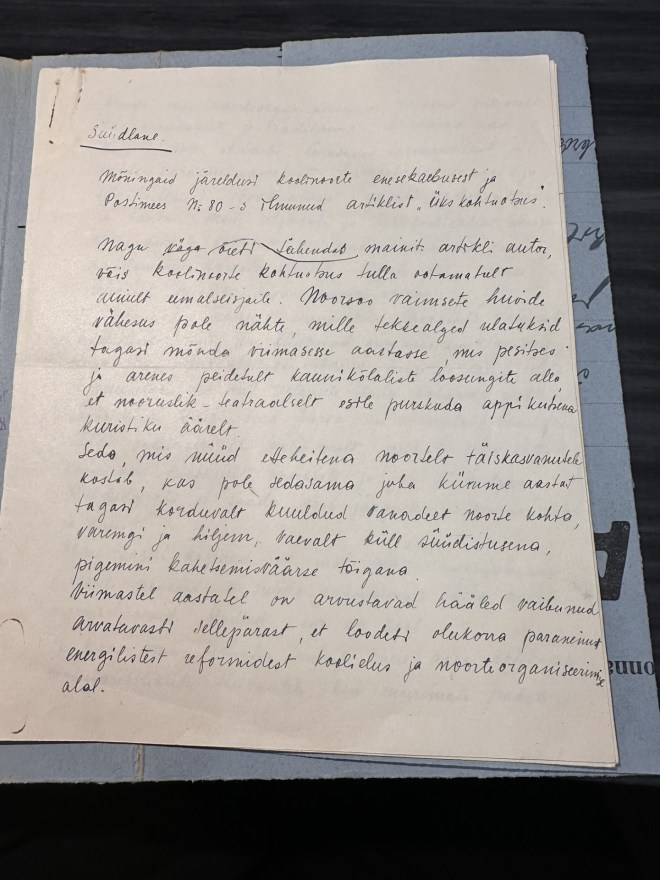 Süüdlane.
Mõningaid järeldusi koolinoorte enesekaebusest ja
Postimees Nr 80-s ilmunud artiklist „Üks kohtuotsus".
Nagu väga õieti tähendab mainit. artikli autor,
võis koolinoorte kohtuotsus tulla ootamatult
ainult eemalseisjaile. Noorsoo vaimsete huvide
vähesus pole nähte, mille tekkealged ulatuksid
tagasi mõnda viimasesse aastasse, mis pesitses
ja arenes peidetult kaunikõlaliste loosungite all,
et nooruslik-teatraalselt esile purskuda appikutsena
kuristiku äärelt.
Seda, mis nüüd etteheitena noortelt täiskasvanutele
kostab, kas pole sedasama juba kümme aastat
tagasi korduvalt kuuldud vanadelt noorte kohta,
varemgi ja hiljem, vaevalt küll süüdistusena,
pigemini kahetsemisväärse tõigana.
Viimastel aastatel on arvustavad hääled vaibunud
arvatavasti sellepärast, et loodeti olukorra paranemist
energilistest reformidest koolidus ja noorteorganiseerimise
alal.